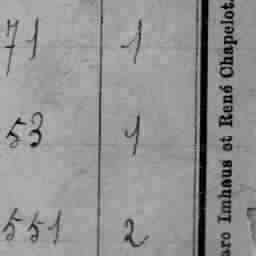 71 1
53 1
551 2
Imhaus et René Chapelot